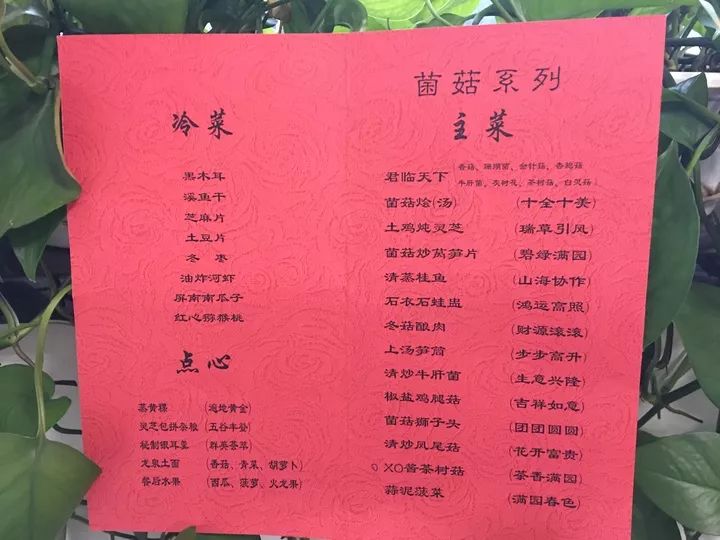 冷菜
黑木耳
溪鱼干
芝麻片
土豆片
冬枣
油炸河虾
屏南南瓜子
红心猕猴桃
点心
蒸黄粿 (遍地黄金)
灵芝包拼杂粮 (五谷丰登)
秘制银耳羹 (群英荟萃)
龙泉土面 (香菇、青菜、胡萝卜)
餐后水果 (西瓜、菠萝、火龙果)
菌菇系列
主菜
君临天下 (香菇、珊瑚菌、金针菇、杏鲍菇
牛肝菌、灰树花、茶树菇、白灵菇)
菌菇烩(汤) (十全十美)
土鸡炖灵芝 (瑞草引风)
菌菇炒莴笋片 (碧绿满园)
清蒸桂鱼 (山海协作)
石衣石蛙盅 (鸿运高照)
冬菇酿肉 (财源滚滚)
上汤笋筒 (步步高升)
清炒牛肝菌 (生意兴隆)
椒盐鸡腿菇 (吉祥如意)
菌菇狮子头 (团团圆圆)
清炒凤尾菇 (花开富贵)
XO酱茶树菇 (茶香满园)
蒜泥菠菜 (满园春色)